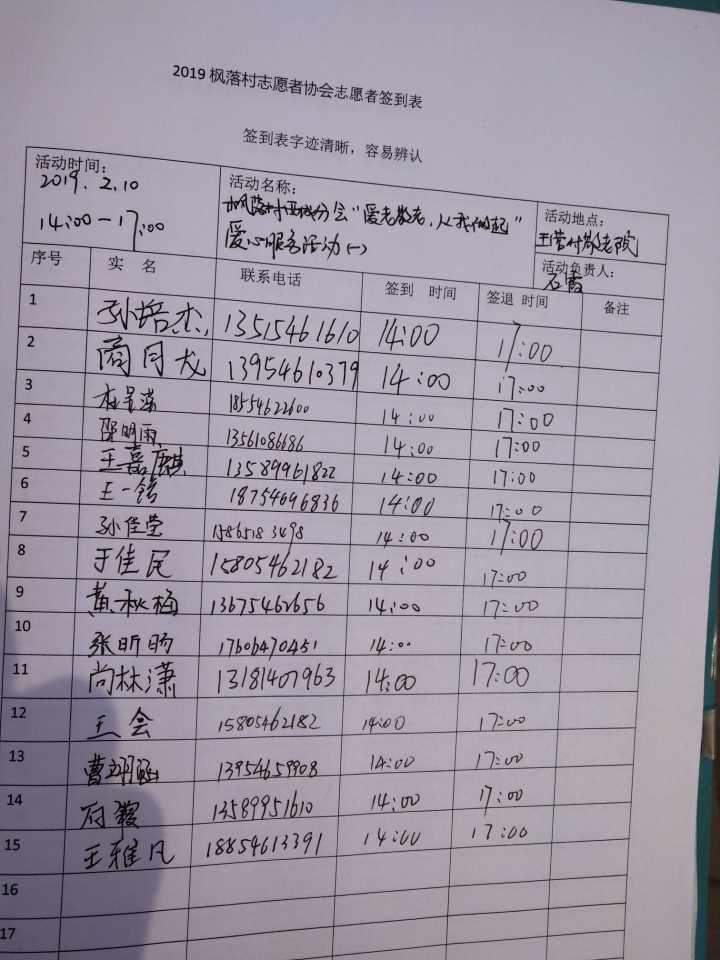 2019 枫落村志愿者协会志愿者签到表
签到表字迹清晰，容易辨认
活动时间：
2019. 2.10
14:00-17:00
活动名称：
枫落村西城分会"爱老敬老，从我做起"
爱心服务活动(一)
活动地点：
王营村敬老院
活动负责人：
石霞
序号 实 名 联系电话 签到 时间 签退 时间 备注
1 孙培杰 13515461610 14:00 17:00
2 商月龙 13954610379 14:00 17:00
3 18554622600 14:00 17:00
4 邵明雨 13561086686 14:00 17:00
5 王嘉麒 13589961822 14:00 17:00
6 王一铭 18754696836 14:00 17:00
7 孙佳莹 15865183498 14:00 17:00
8 于佳民 15805462182 14:00 17:00
9 黄秋梅 13675462656 14:00 17:00
10 张昕旸 17606470451 14:00 17:00
11 尚林潇 13181407963 14:00 17:00
12 王会 15805462182 14:00 17:00
13 曹翊涵 13954659908 14:00 17:00
14 石霞 13589951610 14:00 17:00
15 王雅凡 18854613391 14:00 17:00
16
17